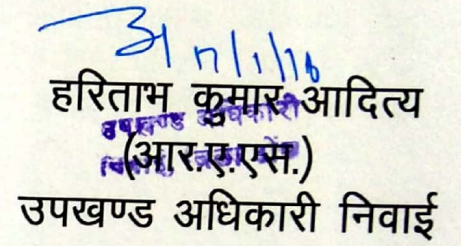 हरिताभ कुमार आदित्य
उपखण्ड अधिकारी
(आर.ए.एस.)
उपखण्ड अधिकारी निवाई